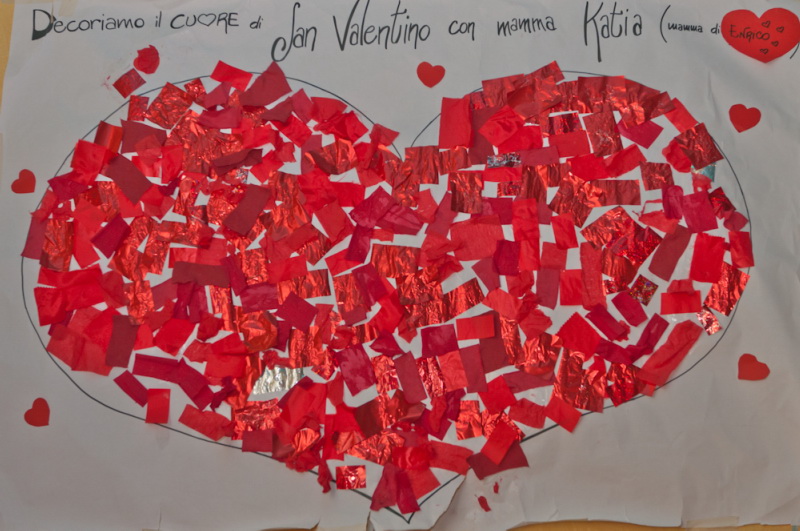 Decoriamo il CUORE di San Valentino con mamma Katia (mamma di ENRICO)